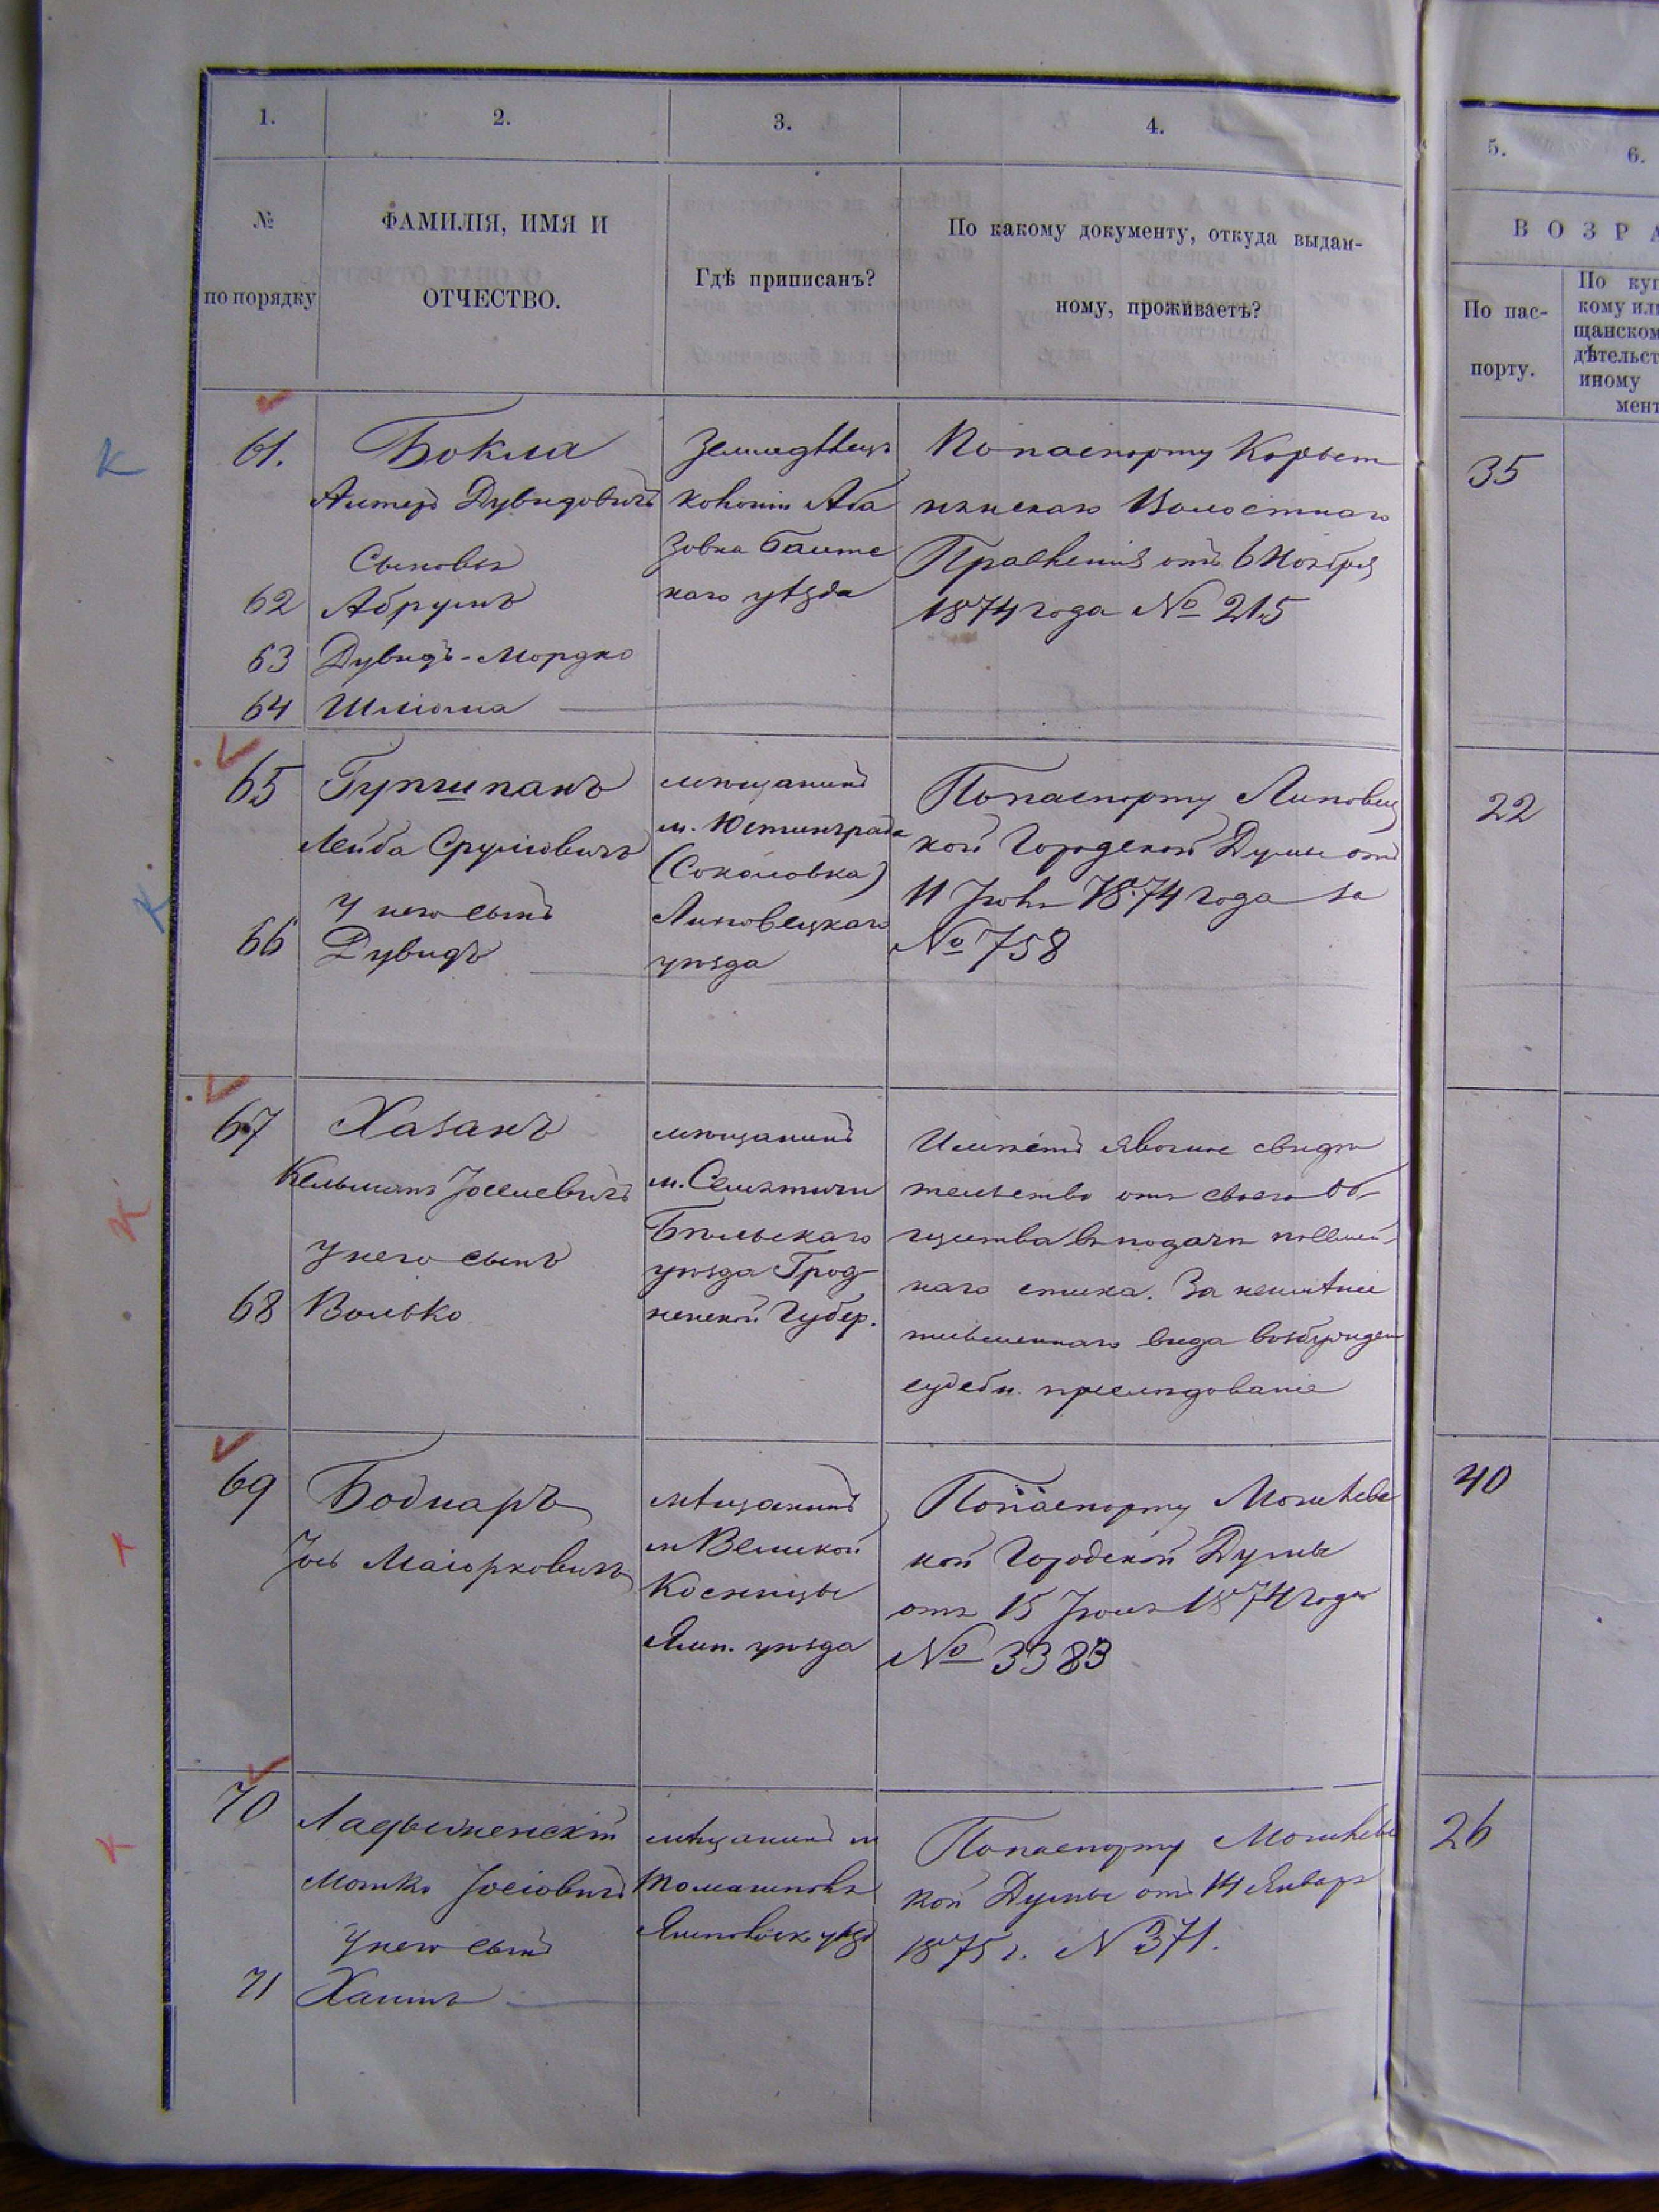 1.
2.
3.
4.
5.
6.
№
по порядку
ФАМИЛІЯ, ИМЯ И
ОТЧЕСТВО.
Гдѣ приписанъ?
По какому документу, откуда выдан-
ному, проживаетъ?
ВОЗРА
По пас-
порту.
По куп
кому или
щанском
дѣтельст
иному
мент
К
61.
Бокла
Алтеръ Дувидовичъ
Сыновья
62 Абрумъ
63 Дувидъ-Мордко
64 Шліома
Земледѣлецъ
колоніи Аба
зовка Балтс
каго уѣзда
По паспорту
Волостнаго
Правленія отъ 6 Ноября
1874 года № 215
35
К
65 Гуршпанъ
Лейба Сруліовичъ
У него сынъ
66 Дувидъ
мѣщанинъ
м. Юстинграда
(Соколовка)
Липовецкаго
уѣзда
По паспорту Липовец
кой Городской Думы отъ
11 Іюля 1874 года за
№ 758
22
К
67 Хазанъ
Кельманъ Іоселевичъ
У него сынъ
68 Волько
мѣщанинъ
м. Семятичи
Бѣльскаго
уѣзда Грод
ненской Губер.
Имѣетъ явочное свидѣ
тельство отъ своего об-
щества
наго списка. За неимѣніе
письменнаго вида возбужден
судебн. преслѣдованіе
69 Боднаръ
Іось Маіорковичъ
мѣщанинъ
м Великой
Косницы
Ямп. уѣзда
По паспорту Могилевс
кой Городской Думы
отъ 15 Іюля 1874 года
№ 3383
40
К
70
Ладыженскій
Мошко Іосіовичъ
У него сынъ
71 Хаимъ
мѣщанинъ м
Томашполь
Ямпольск. уѣзд
По паспорту Могилевс
кой Думы отъ 14 Январ
1875 г. № 371.
26